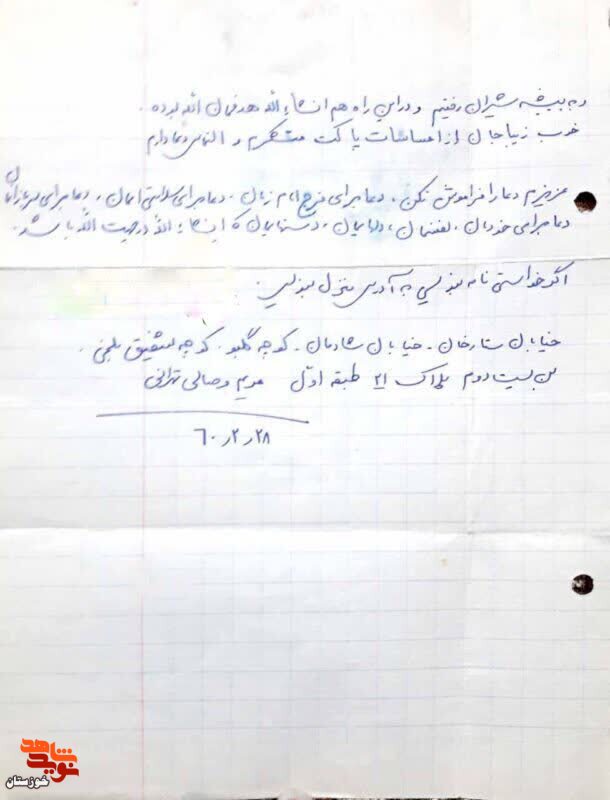 و به بیشه شیران رفتیم و در این راه هم انشاءالله هدفمان الله بوده.
خوب زیبا جان از احساسات پاکت متشکرم و التماس دعا دارم
عزیزم دعا را فراموش نکن، دعا برای فرج امام زمان، دعا برای سلامتی امام، دعا برای
دعا برای خودمان، نفسمان، دلهایمان، دستهایمان که انشاءالله در جهت الله باشد.
اگر خواستی نامه بنویسی به آدرس منزل بنویس.
خیابان ستارخان - خیابان شادمان - کوچه گلبو - کوچه شفیق
بن بیست دوم پلاک ۲۱ طبقه اول مریم وصالی تهرانی
۶۰٫۲٫۲۸
نوید شاهد
خوزستان